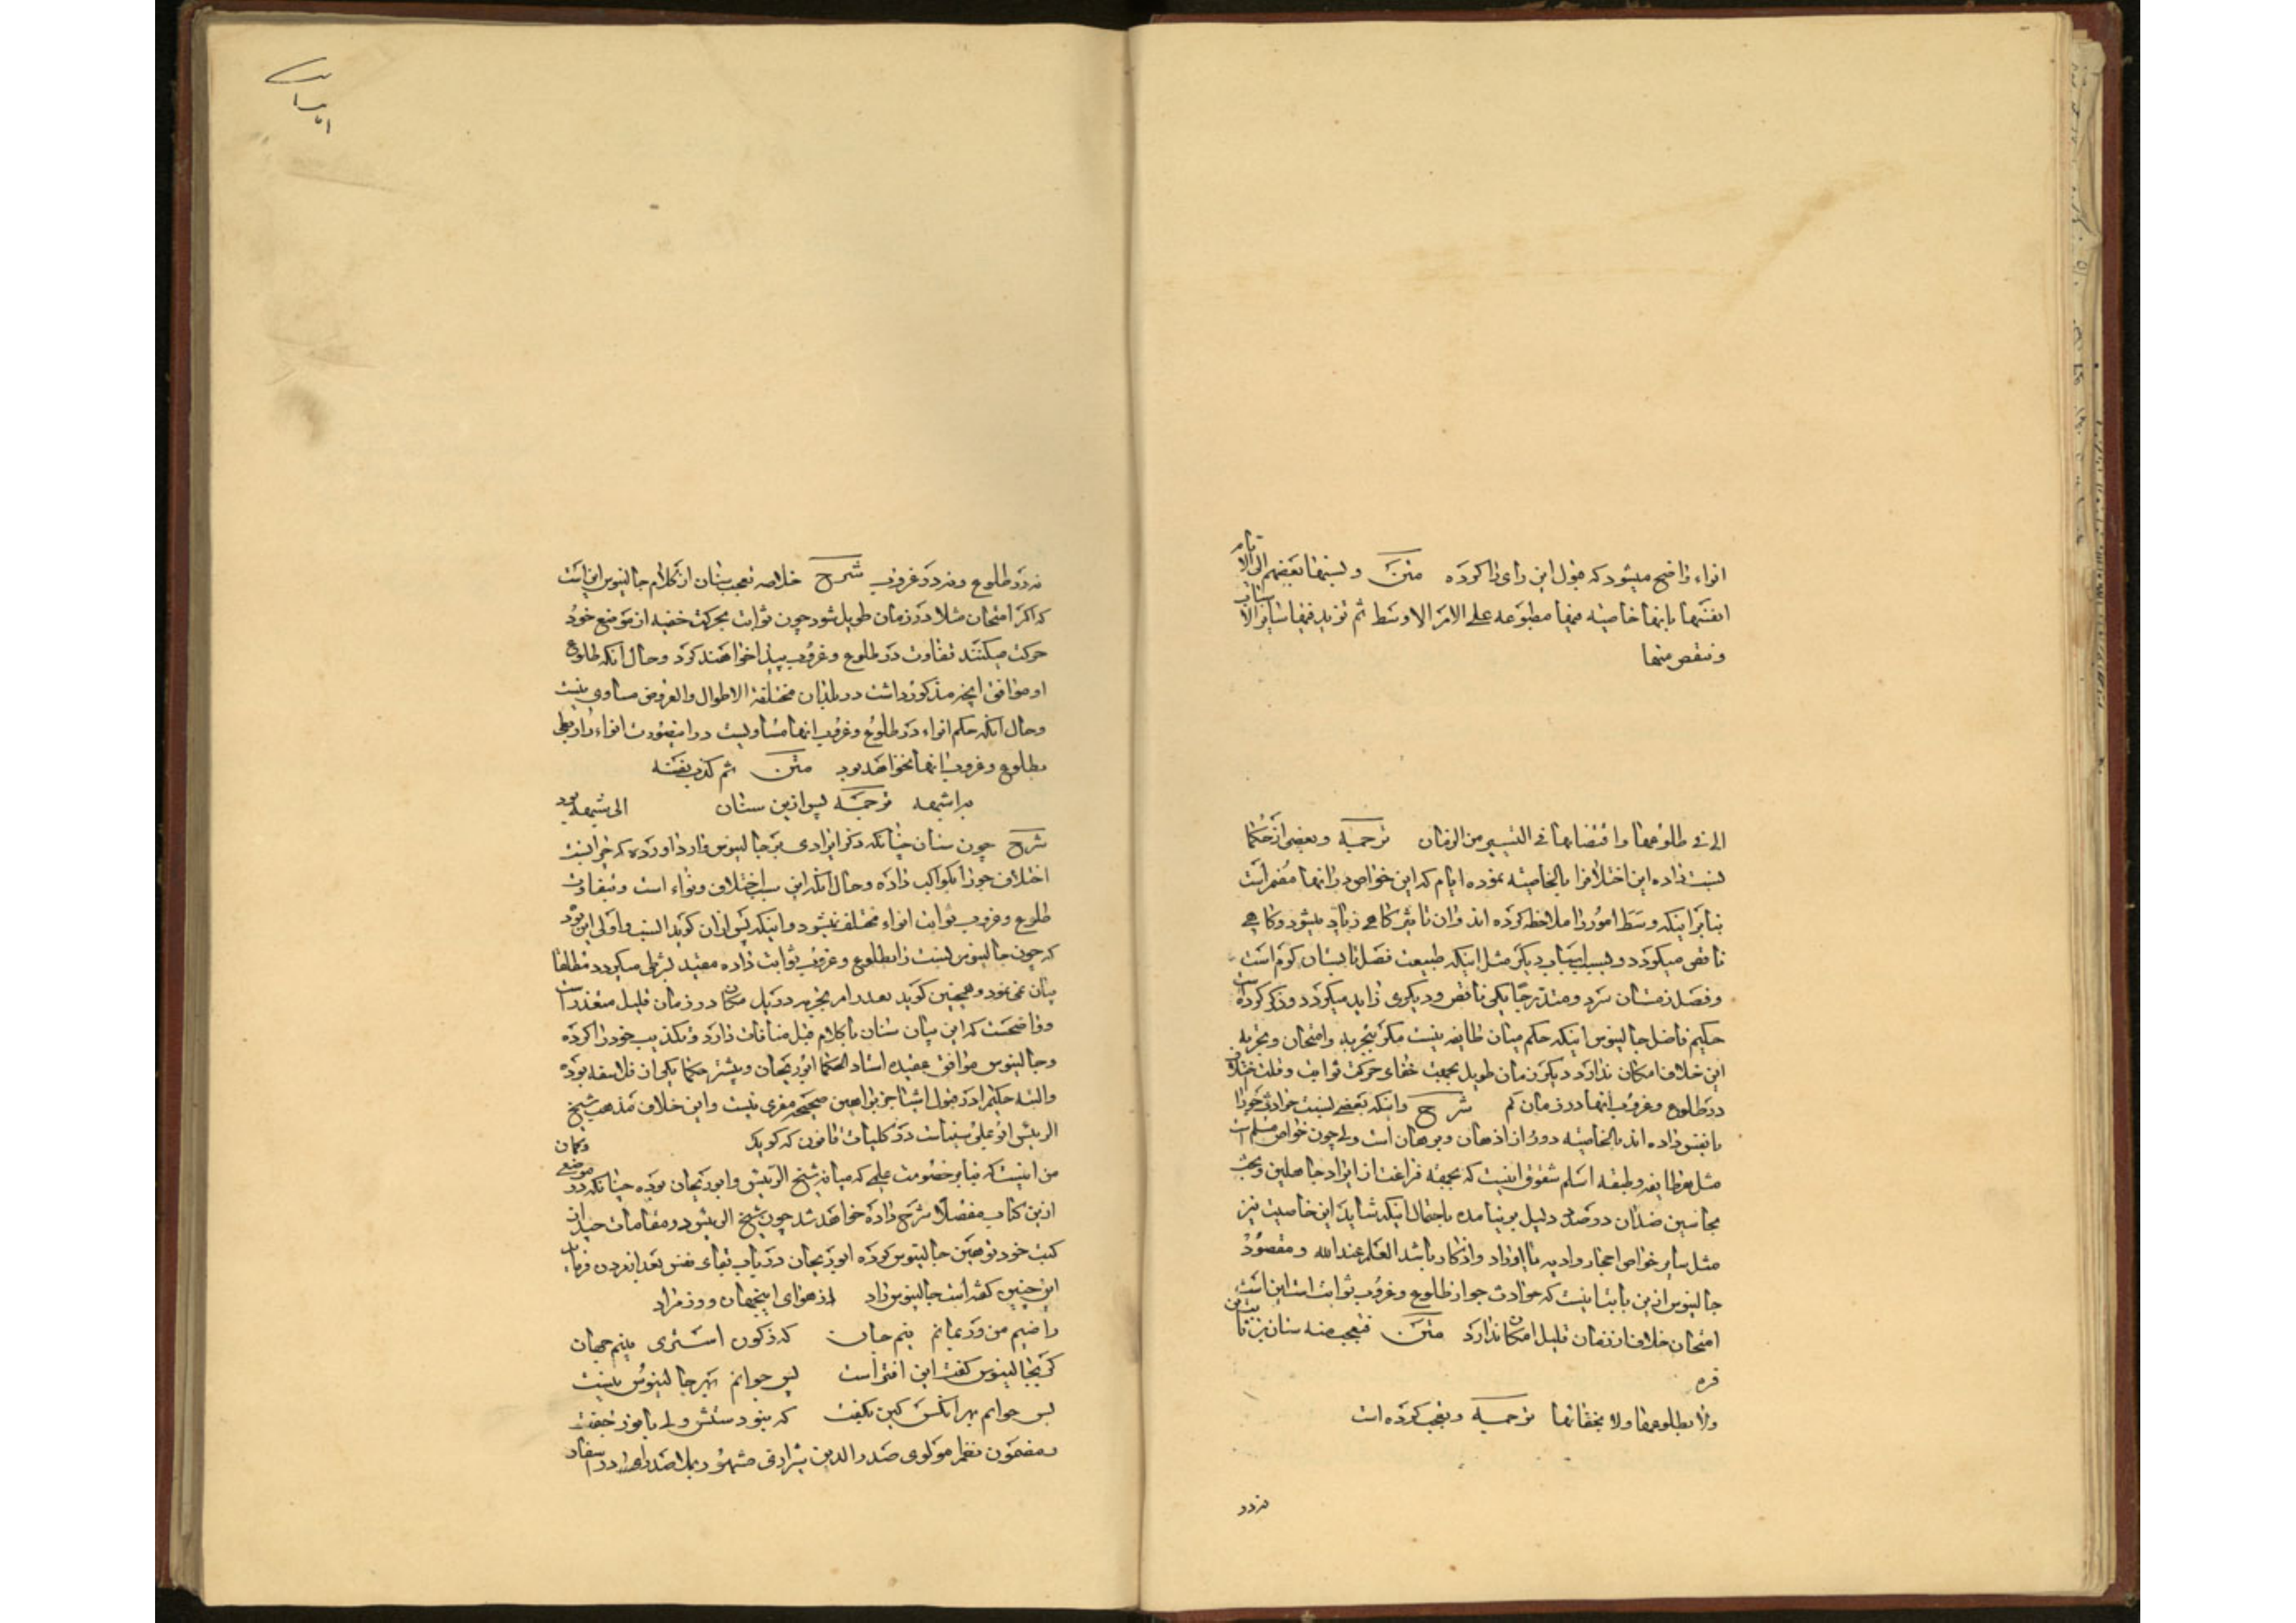 انواء واضح میشود که قبول این رای را کرده متن و لسنها بعضهم الی الا تام
انفسها بانها خاصیته فیها مطبوعه علی الامر الاوسط ثم تزید فیها سایر الاسباب
و تنقص منها
الی فی طلوعها و اقتضائها فی الیسیر من الزمان ترجمه و بعضی از حکما
نسبت داده این اختلاف را بالخاصیته بموده ایام که این خواص در انها مضمر است
بنابر اینکه وسط امور را ملاحظه کرده اند و ان تاثیر کاهی زیاد میشود و کاهی
ناقص میکردد و بسبب اسباب دیکر مثل اینکه طبیعت فصل تابستان کرم است
و فصل زمستان سرد و متدرجا یکی ناقص و دیکری زاید میکردد و ذکر کرده است
حکیم فاضل جالینوس اینکه حکم میان طایفه نیست مکر بتجربه و امتحان و تجربه
این خلاف امکان ندارد دیکر زمان طویل بجهت خفای حرکت ثوابت و قلت اختلاف
در طلوع و غروب انها در زمان کم شرح و اینکه بعضی نسبت حوادث جو را
بانفس داده اند بالخاصیته دور از اذهان و برهان است ولی چون خواص مسلم است
مثل هر طایفه و طبقه اسلم شقوق اینست که بجهة فراغت از ایراد جاهلین و بحث
مجانسین ضدان در صدد دلیل بر نیامده باجمال اینکه شاید این خاصیت نیز
مثل سایر خواص احجار و ادویه یا اوراد و اذکار باشد العلم عند الله و مقصود
جالینوس ازین بابت نیست که حوادث جو از طلوع و غروب ثوابت است این است
امتحان خلاف از زمان قلیل امکان ندارد متن فتعجب منه سنان بن ثابت بن
قره
و لا بطلوعها و لا بخفائها ترجمه و تعجب کرده است
نه در
نه در طلوع و نه در غروب شرح خلاصه تعجب سنان از کلام جالینوس این است
که اکر امتحان مثلا در زمان طویل شود چون ثوابت بحرکت خفیه از موضع خود
حرکت میکنند تفاوت در طلوع و غروب پیدا خواهند کرد و حال انکه طلوع
او موافق انچه مذکور داشت در بلدان مختلفة الاطوال و العروض مساوی نیست
و حال انکه حکم انواء در طلوع و غروب انها مساویست در اینصورت انواء را ربطی
بطلوع و غروب انها نخواهد بود متن ثم کذب نفسه
برایتمه ترجمه پس ازین سنان
شرح چون سنان چنانکه ذکر ایرادی بر جالینوس وارد اورده که چرا نسبت
اختلاف جو را بکواکب داده و حال انکه این سبب اختلاف و نواء است و بتفاوت
طلوع و غروب ثوابت انواء مختلف نمیشود و اینکه پس از ان کوید السبب و اولی این بود
که چون جالینوس نسبت را بطلوع و غروب ثوابت داده مقید بشرطی میکردد مطلقا
بیان نمی نمود و همچنین کوید بعد در امر تجربه در یک مکان در زمان قلیل متعذر است
و واضحست که این بیان سنان با کلام قبل منافات دارد و تکذیب خود را کرده
و جالینوس موافق عقیده استاد الحکما ابو ریحان و بیشتر حکما یکی از فلاسفه بوده
و البته حکیم را در قبول اشیا جز براهین صحیحه مفری نیست و این خلاف مذهب شیخ
الرییس ابو علی سیناست در کلیات قانون که کوید و کمان
من اینست که بنابر خصومت علمی که میانه شیخ الرییس و ابو ریحان بوده چنانکه در موضعی
ازین کتاب مفصلا شرح داده خواهد شد چون شیخ الرییس در مقامات چند از
کتب خود توهین جالینوس کرده ابو ریحان در باب بقای نفس بعد از مردن فرماید
این چنین کفته است جالینوس راد از هوای اینجهان و از مراد
راضیم من ور بمانم نیم جان که ز کون استری بینم جهان
کر نجالینوس کفت این افتراست پس جوابم بهر جالینوس نیست
پس جوابم بهر انکس کین بکفت که نبودستش ولی با نور جفت
و مضمون نظم مولوی صدر الدین شیرازی مشهور بملا صدرا در اسفار